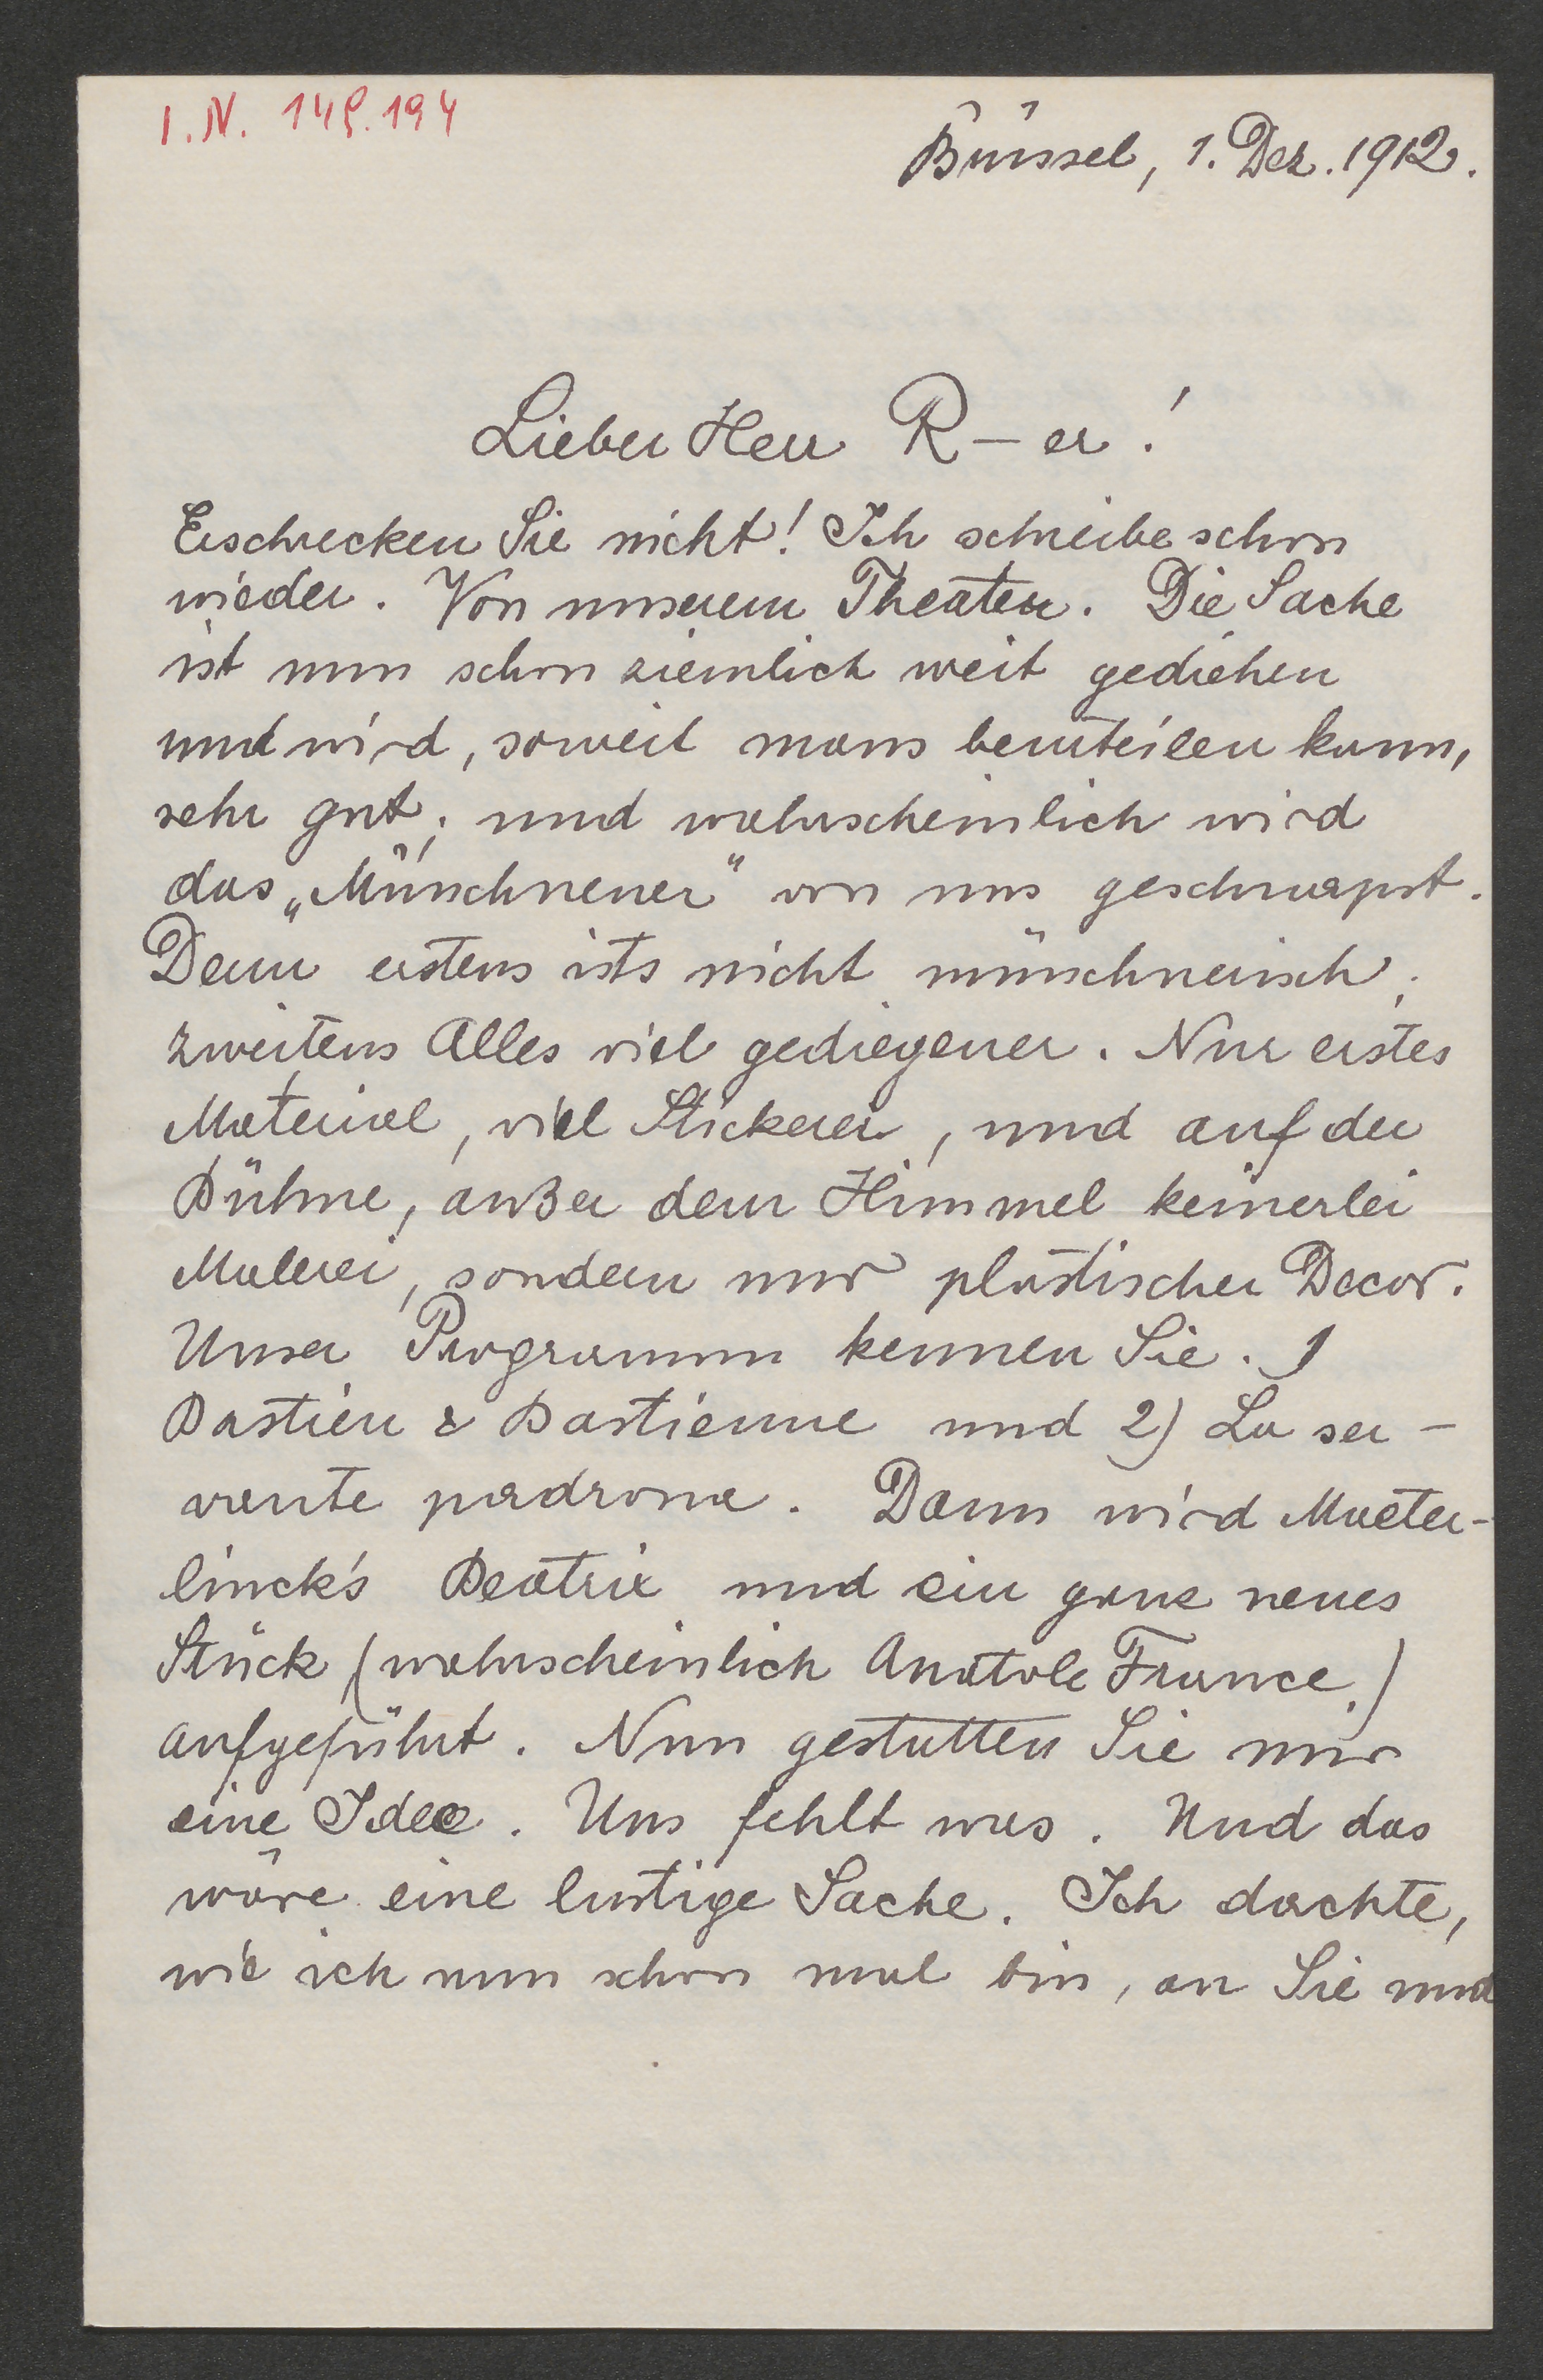 I.N. 145.194
Brüssel, 1. Dez. 1912.
Lieber Herr R – er!
Erschrecken Sie nicht! Ich schreibe schon
wieder. Von unserem Theater. Die Sache
ist nun schon ziemlich weit gediehen
und wird, soweit mans beurteilen kann,
sehr gut; und wahrscheinlich wird
das „Münchnener“ von uns geschnapst.
Denn erstens ists nicht münchnerisch,
zweitens Alles viel gediegener. Nur erstes
Material, viel Stickerei, und auf der
Bühne, außer dem Himmel keinerlei
Malerei, sondern nur plastischer Decor.
Unser Programm kennen Sie. 1
Bastien & Bastienne und 2) La ser-
vante padrona. Dann wird Maeter-
linck's Beatrix und ein ganz neues
Stück (wahrscheinlich Anatole France.)
aufgeführt. Nun gestatten Sie mir
eine Idee. Uns fehlt was. Und das
wäre eine lustige Sache. Ich dachte,
wie ich nun schon mal bin, an Sie und